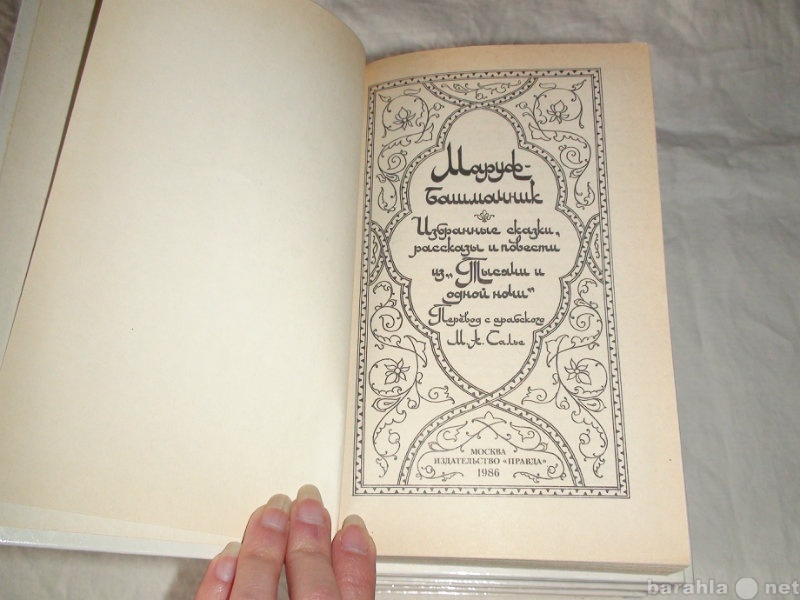 Маруф-
башмачник
Избранные сказки,
рассказы и повести
из „Тысячи и
одной ночи“
Перевод с арабского
М. А. Салье
МОСКВА
ИЗДАТЕЛЬСТВО «ПРАВДА»
1986
barahla.net